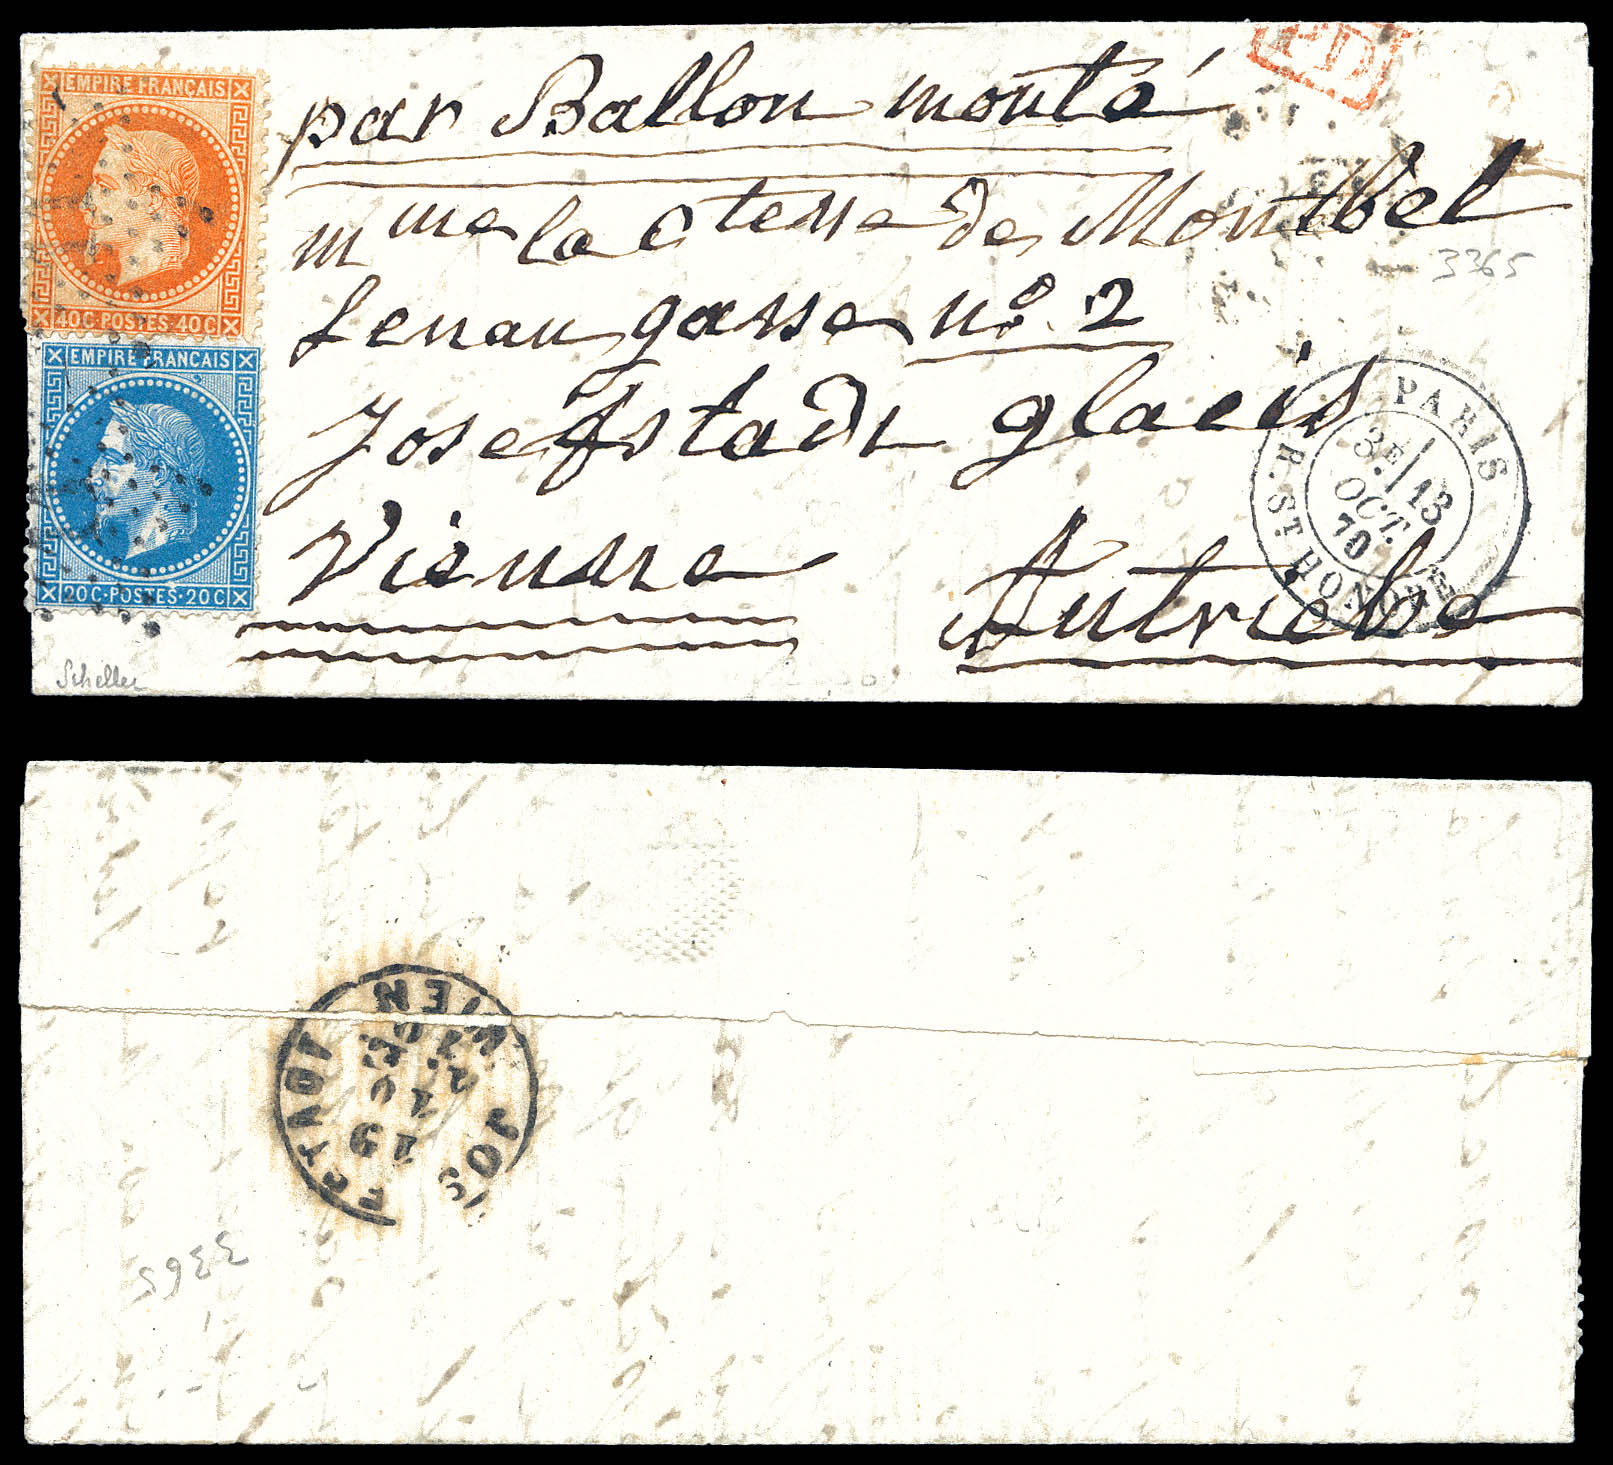 EMPIRE FRANÇAIS
40C·POSTES·40C
EMPIRE FRANÇAIS
20C·POSTES·20C
PD
par Ballon monté
mme la Ctesse de Montbel
Lenau gasse no. 2
Josefstadt glacis
Vienne Autriche
3365
PARIS
3E 13
OCT.
70
R. ST HONORÉ
Scheller
WIEN
JOSEFSTADT
19
10
3365